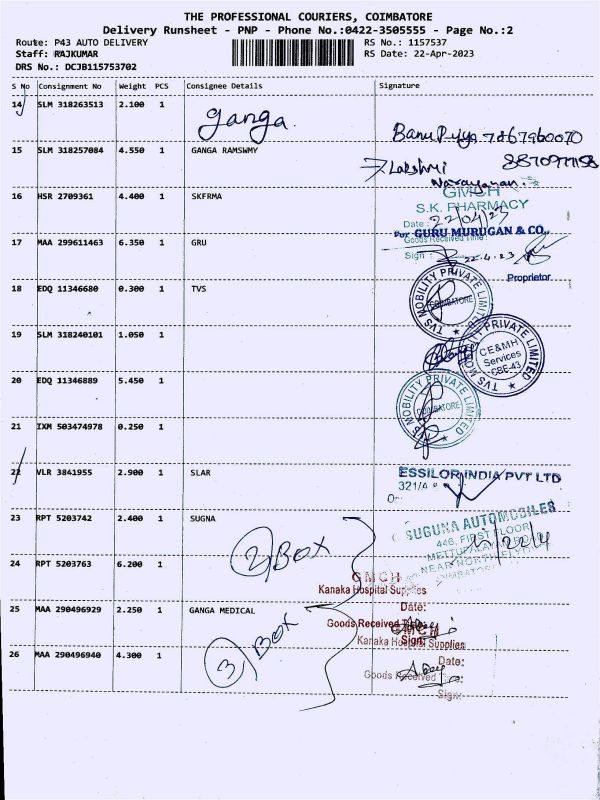 THE PROFESSIONAL COURIERS, COIMBATORE
Delivery Runsheet - PNP - Phone No.:0422-3505555 - Page No.:2
Route: P43 AUTO DELIVERY RS No.: 1157537
Staff: RAJKUMAR RS Date: 22-Apr-2023
DRS No.: DCJB115753702
S No Consignment No Weight PCS Consignee Details Signature
14 SLM 318263513 2.100 1 Ganga.
15 SLM 318257084 4.550 1 GANGA RAMSWMY
Lakshmi
Narayanan.
16 HSR 2709361 4.400 1 SKFRMA
GMCH
S.K. PHARMACY
Date: 22/04/23
For GURU MURUGAN & CO.,
Goods Received Time:
17 MAA 299611463 6.350 1 GRU
Sign: 22.4.23
Proprietor
18 EDQ 11346680 0.300 1 TVS
TVS MOBILITY PRIVATE LIMITED
COIMBATORE
19 SLM 318240101 1.050 1
TVS MOBILITY PRIVATE LIMITED
CE&MH
Services
CBE-43
20 EDQ 11346889 5.450 1
MOBILITY PRIVATE LIMITED
COIMBATORE
21 IXM 503474978 0.250 1
22 VLR 3841955 2.900 1 SLAR
ESSILOR INDIA PVT LTD
321/4
23 RPT 5203742 2.400 1 SUGNA
SUGUNA AUTOMOBILES
446, FIRST FLOOR
2 BOX
24 RPT 5203763 6.200 1
GMCH
Kanaka Hospital Supplies
25 MAA 290496929 2.250 1 GANGA MEDICAL
Date:
Goods Received Time:
Sign:
GMCH
Kanaka Hospital Supplies
3 BOX
26 MAA 290496940 4.300 1
Date:
Goods Received Time:
Sign: